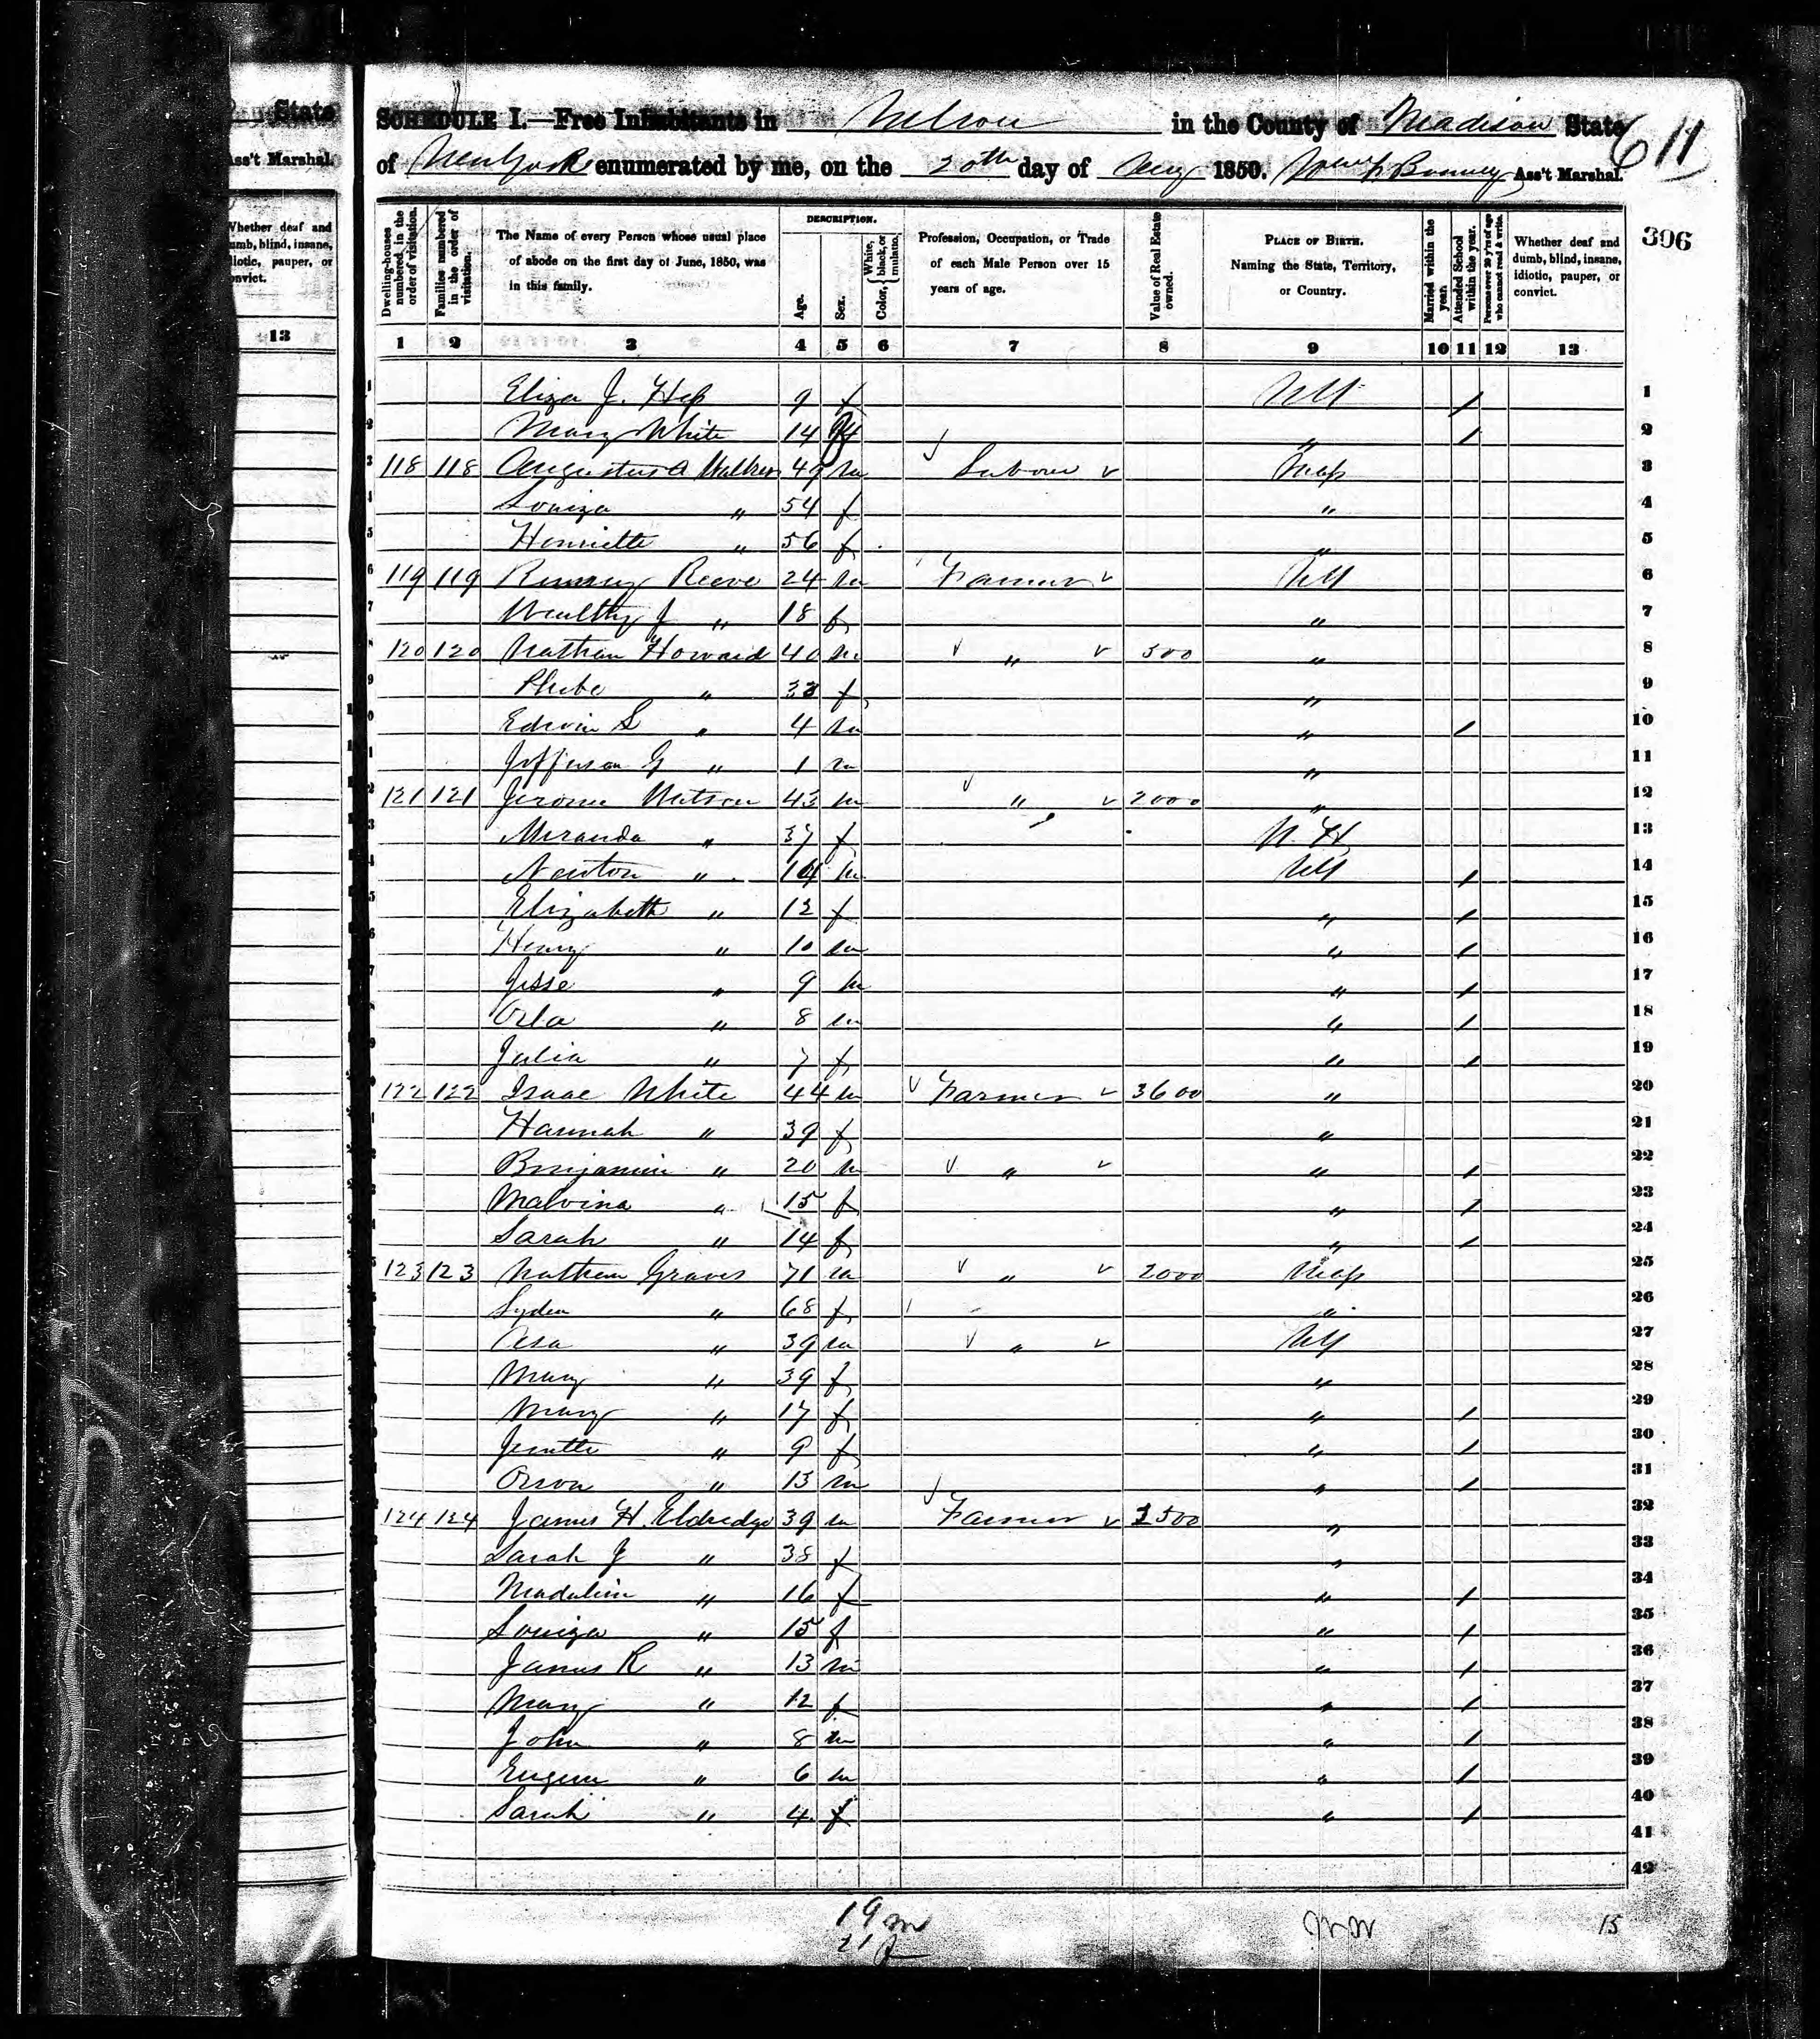 State
611
Ass't Marshal.
SCHEDULE I.—Free Inhabitants in Nelson in the County of Madison State
of New York enumerated by me, on the 20th day of Aug 1850. Bonney Ass't Marshal.
396
Whether deaf and dumb, blind, insane, idiotic, pauper, or convict.
13
Dwelling-houses numbered in the order of visitation.
Families numbered in the order of visitation.
The Name of every Person whose usual place of abode on the first day of June, 1850, was in this family.
DESCRIPTION.
Age.
Sex.
Color, White, black, or mulatto.
Profession, Occupation, or Trade of each Male Person over 15 years of age.
Value of Real Estate owned.
PLACE OF BIRTH. Naming the State, Territory, or Country.
Married within the year.
Attended School within the year.
Persons over 20 y'rs of age who cannot read & write.
Whether deaf and dumb, blind, insane, idiotic, pauper, or convict.
1 2 3 4 5 6 7 8 9 10 11 12 13
1 Eliza J. 9 f NY / 1
2 Mary White 14 f " / 2
3 118 118 Augustus A 49 m Labourer Mass 3
4 Louiza " 54 f " 4
5 Henriette " 56 f " 5
6 119 119 Reeve 24 m Farmer NY 6
7 Wealthy J " 18 f " 7
8 120 120 Nathan Howard 40 m " 500 " 8
9 Phebe " 33 f " 9
10 Edwin S " 4 m " / 10
11 Jefferson G " 1 m " 11
12 121 121 Jerome Watson 43 m " 2000 " 12
13 Miranda " 37 f N.H. 13
14 Newton " 14 m NY / 14
15 Elizabeth " 12 f " / 15
16 Henry " 10 m " / 16
17 Jesse " 9 m " / 17
18 Orla " 8 m " / 18
19 Julia " 7 f " / 19
20 122 122 Isaac White 44 m Farmer 3600 " 20
21 Hannah " 39 f " 21
22 Benjamin " 20 m " " / 22
23 Malvina " 15 f " / 23
24 Sarah " 14 f " / 24
25 123 123 Nathan Graves 71 m " 2000 Mass 25
26 Lydia " 68 f " 26
27 Asa " 39 m " NY 27
28 Mary " 39 f " 28
29 Mary " 17 f " / 29
30 Jenette " 9 f " / 30
31 Orson " 13 m " / 31
32 124 124 James H. Eldredge 39 m Farmer 2500 " 32
33 Sarah J " 38 f " 33
34 Madaline " 16 f " / 34
35 Louiza " 15 f " / 35
36 James R " 13 m " / 36
37 Mary " 12 f " / 37
38 John " 8 m " / 38
39 Eugene " 6 m " / 39
40 Sarah " 4 f " / 40
41
42
19 m
21 f
15